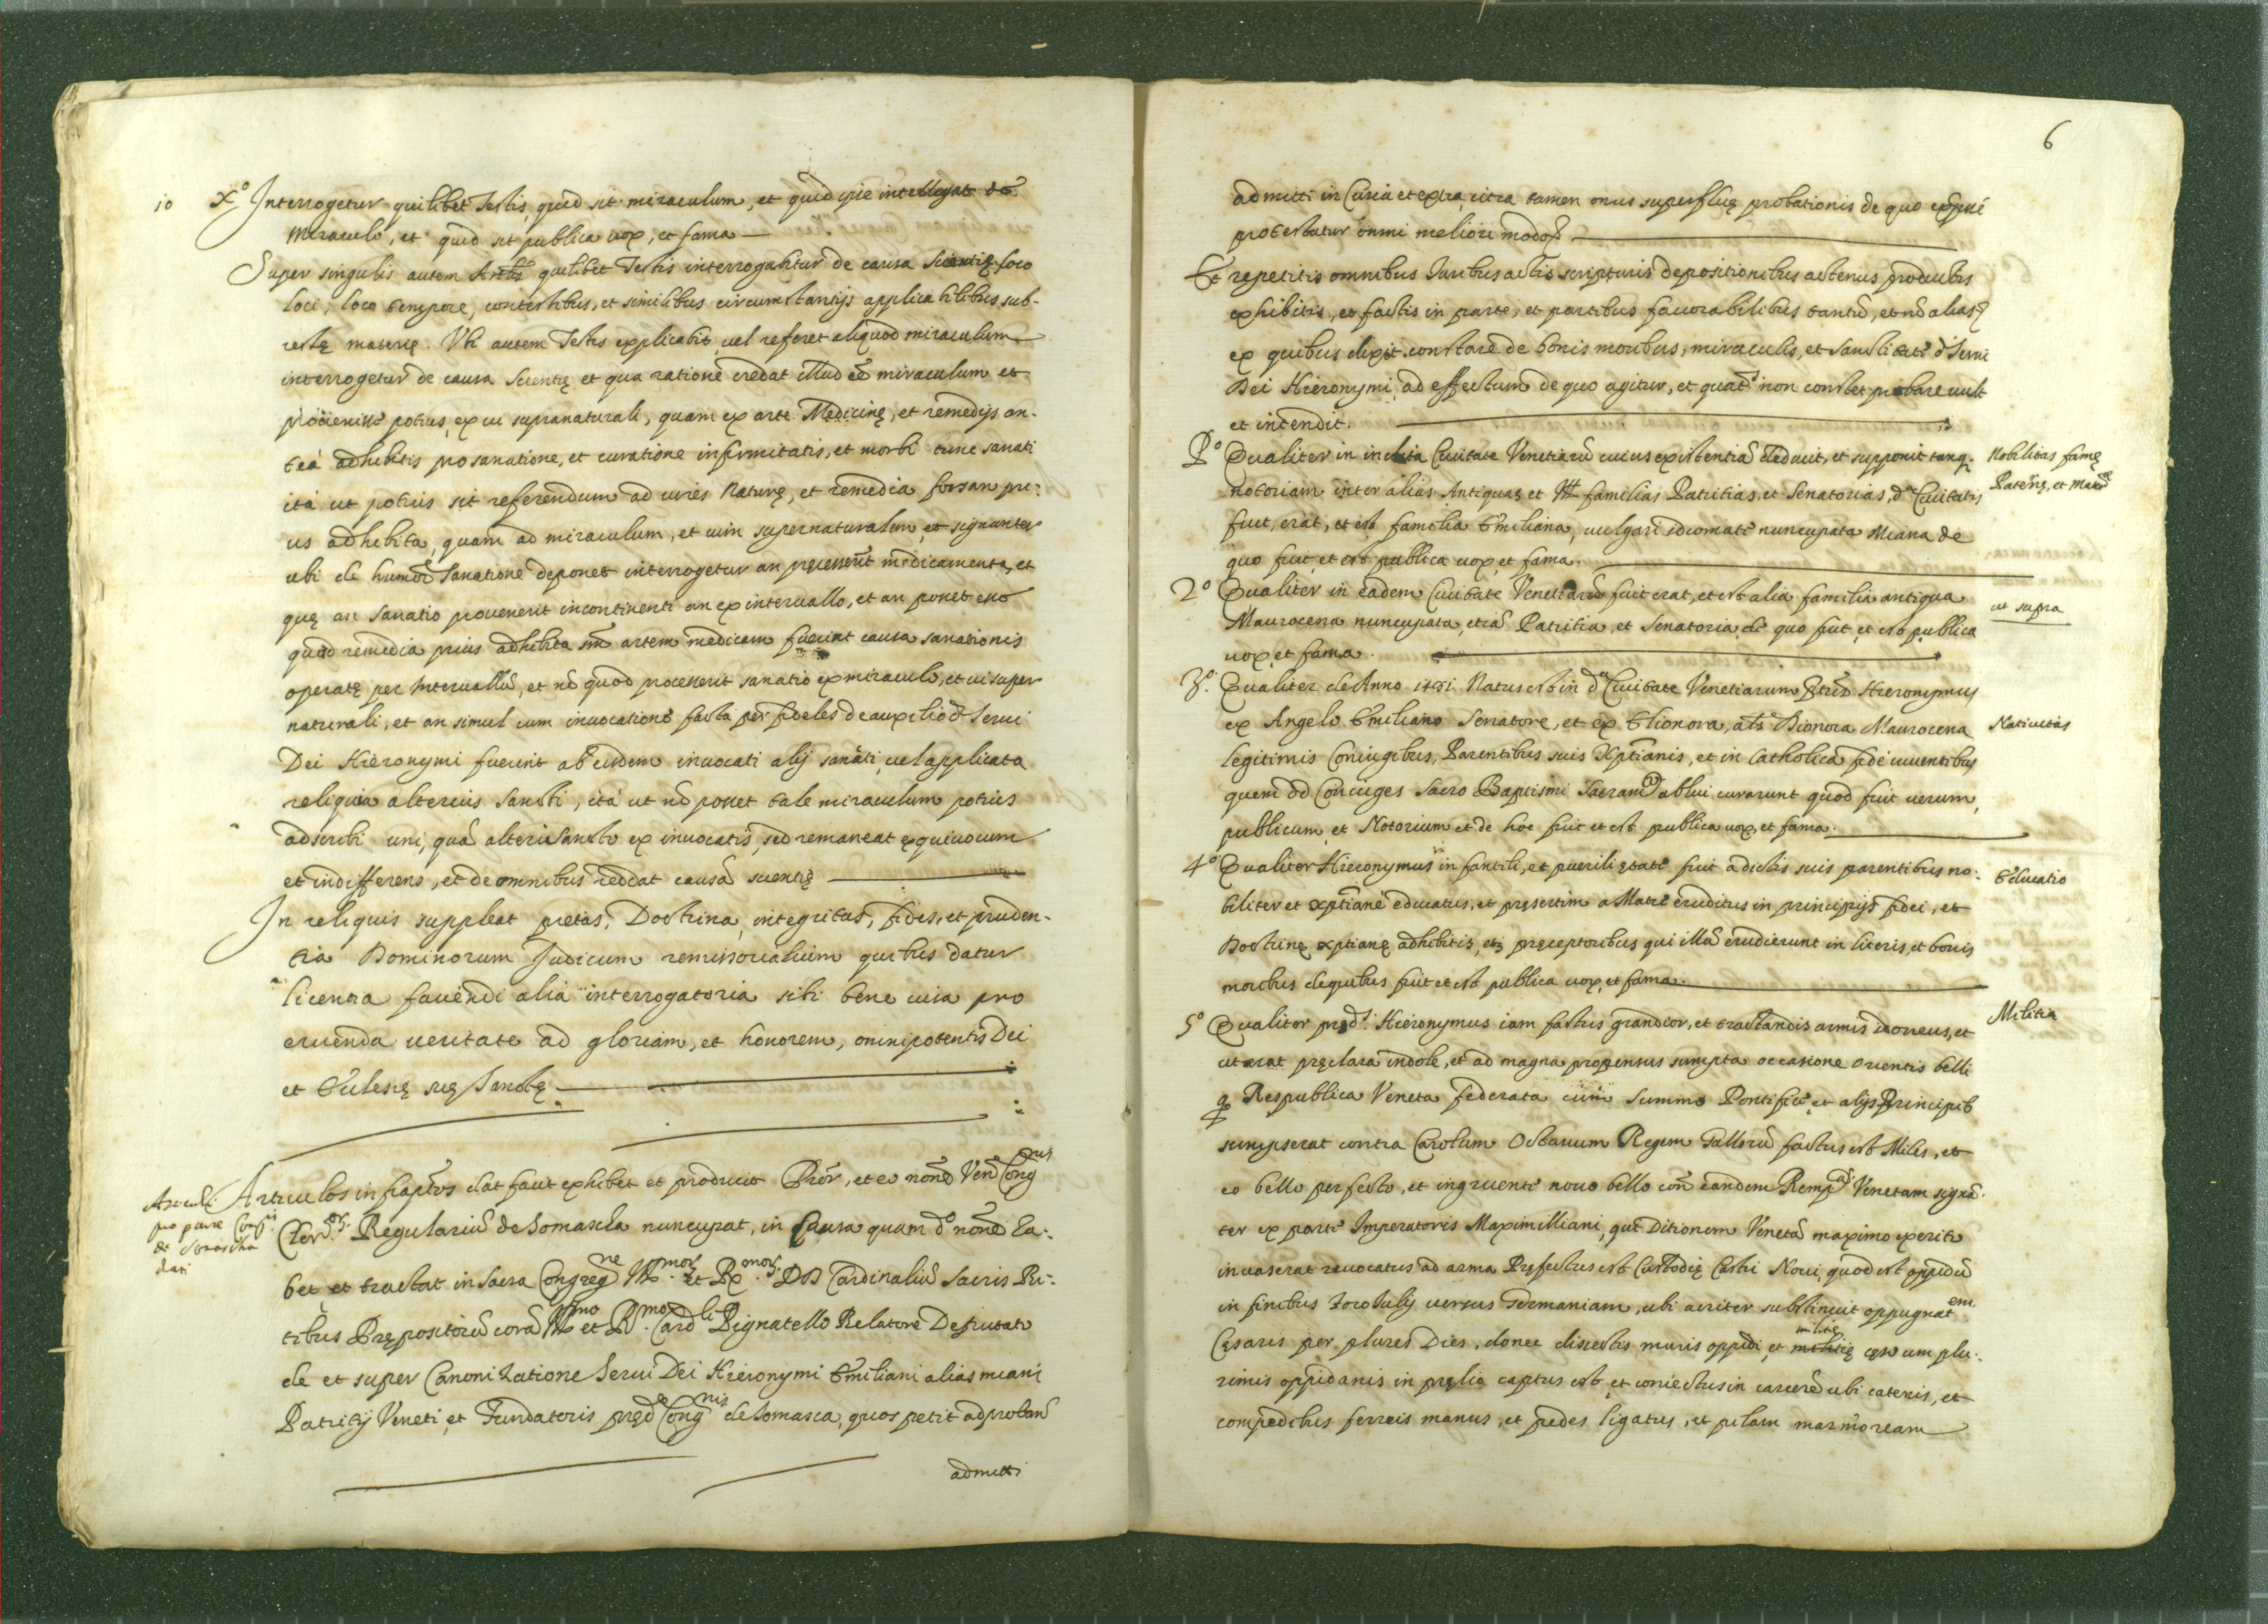 10 X.º Interrogetur quilibet Testis, quid sit miraculum, et quid ipse intelligat de
miraculo, et quid sit publica uox, et fama
Super singulis autem Artlis quilibet Testis interrogabitur de causa scientię loco
loci, loco tempore, contestibus, et similibus circumstantijs applicabilibus sub-
iectę materię. Vbi autem Testis explicabit, uel referet aliquod miraculum
interrogetur de causa scientię et qua ratione credat illud eē miraculum et
prouenisse potius, ex ui supranaturali, quam ex arte Medicinę, et remedijs an-
teà adhibitis pro sanatione, et curatione infirmitatis, et morbi tunc sanati
ità ut potius sit referendum ad uires naturę, et remedia forsan pri-
us adhibita, quam ad miraculum, et uim supernaturalem, et signanter
ubi de humõe sanatione deponet interrogetur an pręcesserīt medicamenta, et
quę an sanatio prouenerit incontinenti an ex interuallo, et an posset
quod remedia prius adhibita artem medicam fuerint causa sanationis
operatę per interuallũ, et nõ quod processerit sanatio ex miraculo, et ui super
naturali, et an simul cum inuocatione facta per fideles de auxilio dⁱ Serui
Dei Hieronymi fuerint ab eisdem inuocati alij sancti, uel applicata
reliquia alterius sancti, ità ut nõ posset tale miraculum potius
adscribi uni, quã alteri Sancto ex inuocatis, sed remaneat ęquiuocum
et indifferens, et de omnibus reddat causã scientię
In reliquis suppleat pietas, Doctrina, integritas, fides, et pruden-
tia Dominorum Judicum remissorialium quibus datur
licentia faciendi alia interrogatoria sibi bene uisa pro
eruenda ueritate ad gloriam, et honorem, omnipotentis Dei
et Ecclesię suę Sanctę
Articuli
pro parte Congnis
de Somascha
dati
Articulos infraptos dat facit exhibet et producit Prõr, et eo nõne Veñ Congnis
Clercor. Regulariũ de Somascha nuncupat, in causa quam dº nõne ha-
bet et tractat in sacra Congregne Illmor. et Rmor. DD Cardinaliũ sacris Ri-
tibus Prępositorũ corã Illmo et Rmo. Cardli Pignatello Relatore Deputato
de et super Canonizatione Serui Dei Hieronymi Emiliani alias miani
Patritij Veneti, et Fundatoris pręd. Congnis de Somasca, quos petit ad probanđ
admitti
6
admitti in Curia et extra, citra tamen onus superfluę probationis de quo exprsè
protestatur omni meliori modo
Et repetitis omnibus Iuribus actis scripturis depositionibus actenus productis
exhibitis, et factis in parte, et partibus fauorabilibus tantũ, et nõ alias
ex quibus dixit constare de bonis moribus, miraculis, et sanctitate dⁱ Serui
Dei Hieronymi, ad effectum de quo agitur, et quats non constet probare uult
et intendit.
Pº Qualiter in inclita Ciuitate Venetiarũ cuius existentiã deducit, et supponit tanq.
Nobilitas famę
Paternę, et Matnę
notoriam inter alias Antiquas et Ill familias Patritias, et Senatorias, dę Ciuitatis
fuit, erat, et est familia Emiliana, uulgari idiomate nuncupata Miana de
quo fuit, et est publica uox, et fama.
2º Qualiter in eadem Ciuitate Venetiarũ fuit erat, et est alia familia antiqua
ut supra
Maurocena nuncupata, etiã Patritia, et Senatoria de quo fuit, et est publica
uox, et fama.
3º. Qualiter de Anno 1481. Natus est in dª Ciuitate Venetiarum Hieronymus
ex Angelo Emiliano Senatore, et ex Elionora, als Dionora Maurocena
Natiuitas
legitimis Coniugibus, Parentibus suis Xptianis, et in Catholica fide uiuentibus
quem dd Coniuges Sacro Baptismi Sacramto ablui curarunt quod fuit uerum,
publicum, et Notorium et de hoc fuit et est publica uox, et fama.
4º Qualiter Hieronymus in fantili, et puerili ętate fuit a dictis suis parentibus no-
Educatio
biliter et xptiane educatus, et pręsertim a Matre eruditus in principijs fidei, et
Doctrinę xptianę adhibitis, et pręceptoribus qui illũ erudierunt in literis, et bonis
moribus de quibus fuit et est publica uox, et fama.
5º Qualiter prędˢ. Hieronymus iam factus grandior, et tractandis armis idoneus, et
Militia
ut erat pręclara indole, et ad magna propensus sumpta occasione orientis belli
q Respublica Veneta federata cum Summo Pontifice, et alijs Principib
sumpserat contra Carolum Octauum Regem Gallorũ factus est Miles, et
eo bello perfecto, et ingruente nouo bello con eandem Rempcam Venetam signã-
ter ex parte Imperatoris Maximilliani, qui Ditionem Venetã maximo exercitu
inuaserat reuocatus ad arma Pręfectus est Custodię Castri Noui, quod est oppidũ
in finibus Foro Iulij uersus Germaniam, ubi acriter substinuit oppugnatem.
Cęsaris per plures Dies, donec disiectis muris oppidi, et militię cęso cum plu-
rimis oppidanis in pręlio captus est, et coniectus in carcerẽ ubi catenis, et
compedibus ferreis manus, et pedes ligatus, et pilam marmoream